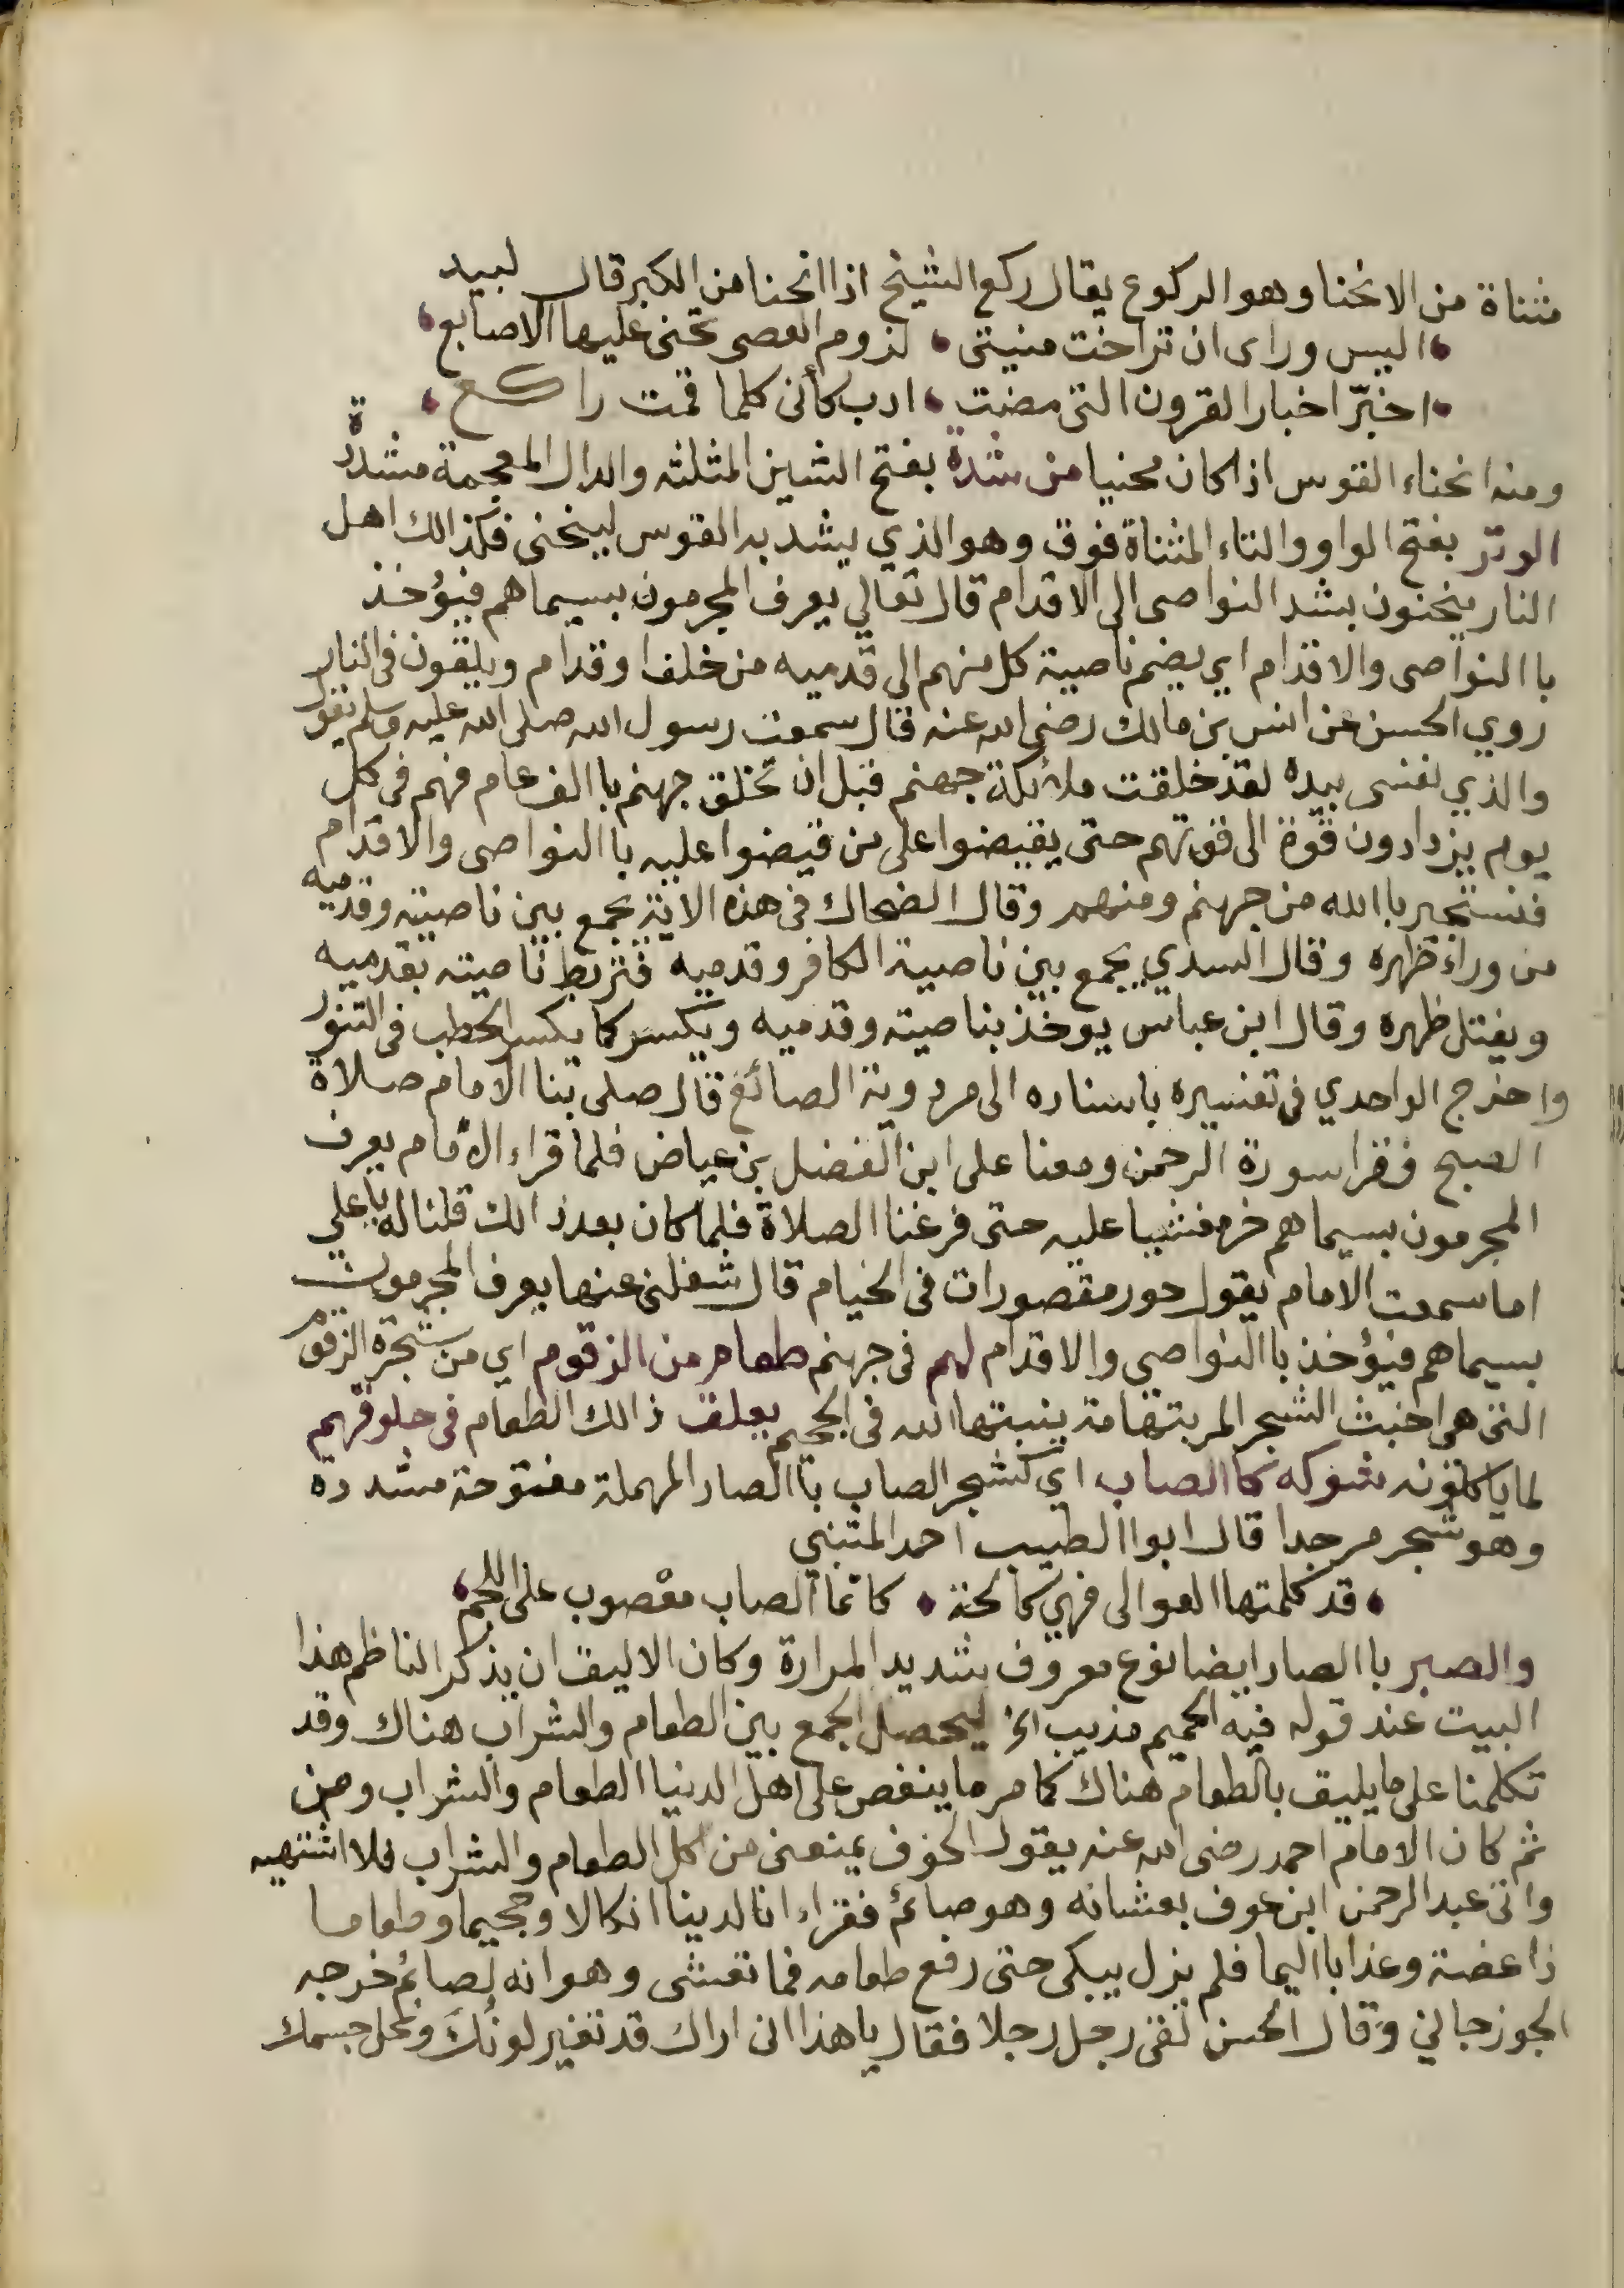 مثناة من الانحنا وهو الركوع يقال ركع الشيخ اذا انحنا من الكبر قال لبيد
اليس وراى ان تراخت منيتى لزوم العصى تحنى عليها الاصابع
اخبّر اخبار القرون التى مضت ادب كأنى كلما قمت راكع
ومنه انحناء القوس اذا كان محنيا من شدة بفتح الشين المثلثه والدال المعجمة مشددة
الوتر بفتح الواو والتاء المثناة فوق وهو الذي يشد به القوس لينحنى فكذالك اهل
النار ينحنون بشد النواصى الى الاقدام قال تعالي يعرف المجرمون بسيماهم فيؤخذ
باالنواصى والاقدام اي يضم ناصية كل منهم الى قدميه من خلف او قدام ويلقون فى النار
روي الحسن عن انس بن مالك رضى الله عنه قال سمعت رسول الله صلى الله عليه وسلم يقول
والذي نفسى بيده لقد خلقت ملائكة جهنم قبل ان تخلق جهنم باالف عام فهم فى كل
يوم يزدادون قوة الى قوتهم حتى يقبضوا على من قبضوا عليه باالنواصى والاقدام
فنستجير باالله من جهنم ومنهم وقال الضحاك فى هذه الاية يجمع بين ناصيته وقدميه
من وراء ظهره وقال السدي يجمع بين ناصية الكافر وقدميه فتربط ناصيته بقدميه
ويفتل ظهره وقال ابن عباس يوخذ بناصيته وقدميه ويكسر كما يكسر الحطب فى التنور
واخرج الواحدي فى تفسيره باسناده الى مردوية الصائغ قال صلى بنا الامام صلاة
الصبح فقرا سورة الرحمن ومعنا على ابن الفضل بن عياض فلما قراء الامام يعرف
المجرمون بسيماهم خر مغشيا عليه حتى فرغنا الصلاة فلما كان بعد ذالك قلنا له يا علي
اما سمعت الامام يقول حور مقصورات فى الخيام قال شغلنى عنها يعرف المجرمون
بسيماهم فيؤخذ باالنواصى والاقدام لهم فى جهنم طعام من الزقوم اي من شجرة الزقوم
التى هى اخبث الشجر المر بتهامة ينبتها الله فى الجحيم يعلق ذالك الطعام فى حلوقهم
لما ياكلونه بشوكه كاالصاب اي كشجر الصاب باالصاد المهملة مفتوحة مشددة
وهو شجر مر جدا قال ابوا الطيب احمد المتنبي
قد كلمتها العوالى فهي كالحة كانما الصاب معصوب على اللجم
والصبر باالصاد ايضا نوع معروف شديد المرارة وكان الاليق ان يذكر الناظم هذا
البيت عند قوله فيه الحميم مذيب الخ ليحصل الجمع بين الطعام والشراب هناك وقد
تكلمنا على ما يليق بالطعام هناك كما مر ما ينغص على اهل الدنيا الطعام والشراب ومن
ثم كان الامام احمد رضى الله عنه يقول الخوف يمنعنى من اكل الطعام والشراب فلا اشتهيه
واتى عبد الرحمن ابن عوف بعشائه وهو صائم فقراء ان لدينا انكالا وجحيما وطعاما
ذا غصة وعذابا اليما فلم يزل يبكى حتى رفع طعامه فما تعشى وهو انه لصائم خرجه
الجوزجاني وقال الحسن لقى رجل رجلا فقال يا هذا انى اراك قد تغير لونك ونحل جسمك